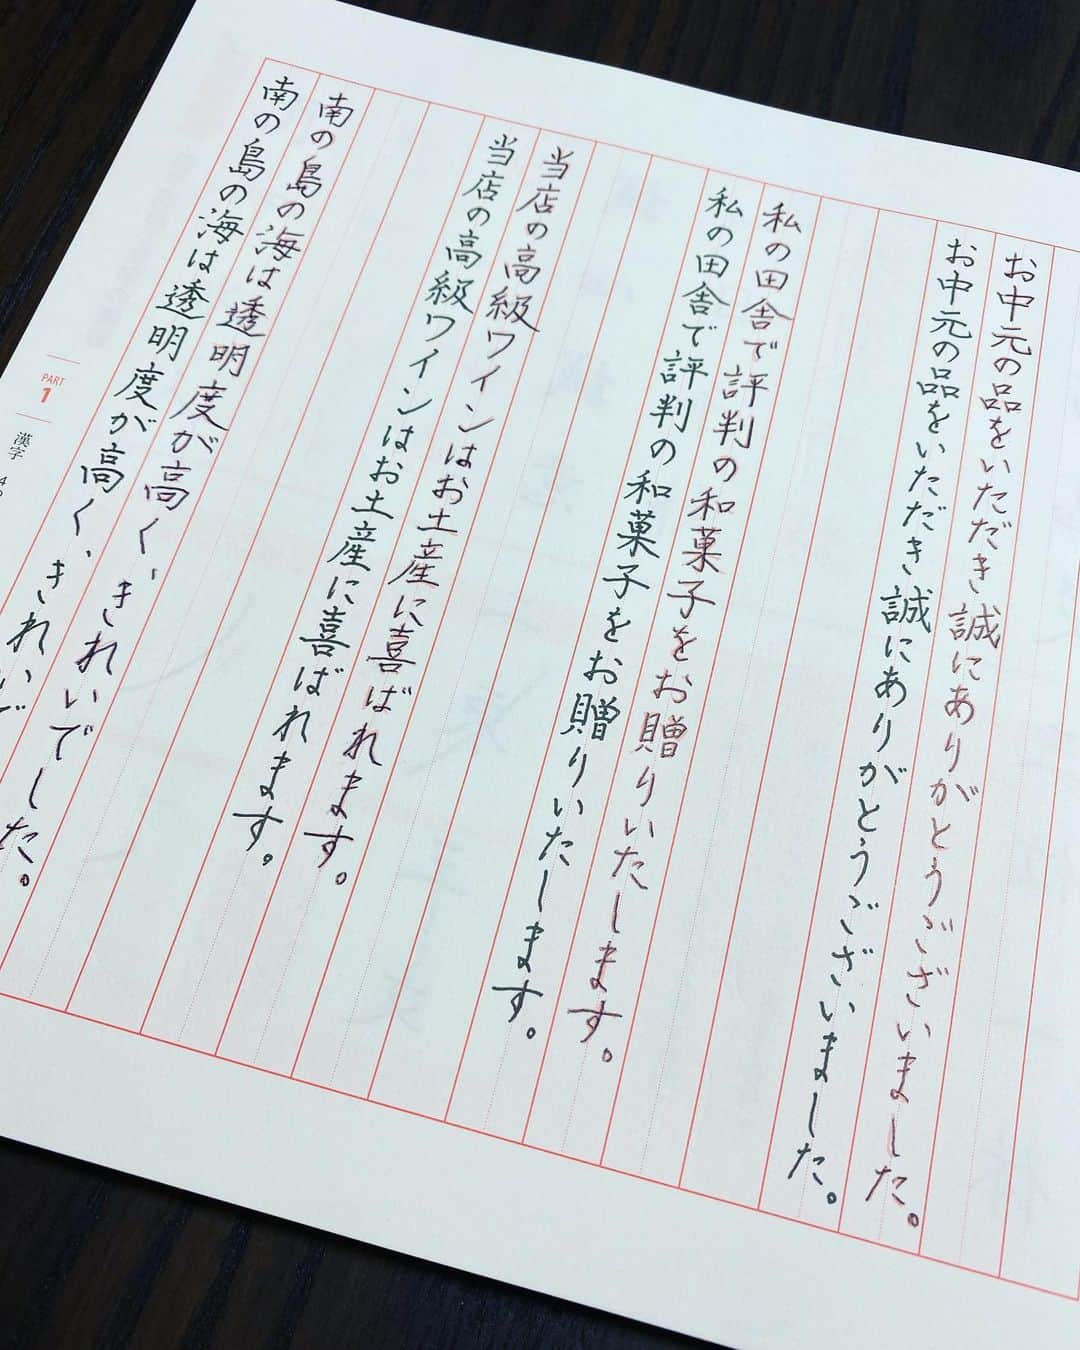 お中元の品をいただき誠にありがとうございました。
お中元の品をいただき誠にありがとうございました。
私の田舎で評判の和菓子をお贈りいたします。
私の田舎で評判の和菓子をお贈りいたします。
当店の高級ワインはお土産に喜ばれます。
当店の高級ワインはお土産に喜ばれます。
南の島の海は透明度が高く、きれいでした。
南の島の海は透明度が高く、きれいで
PART
1
漢字